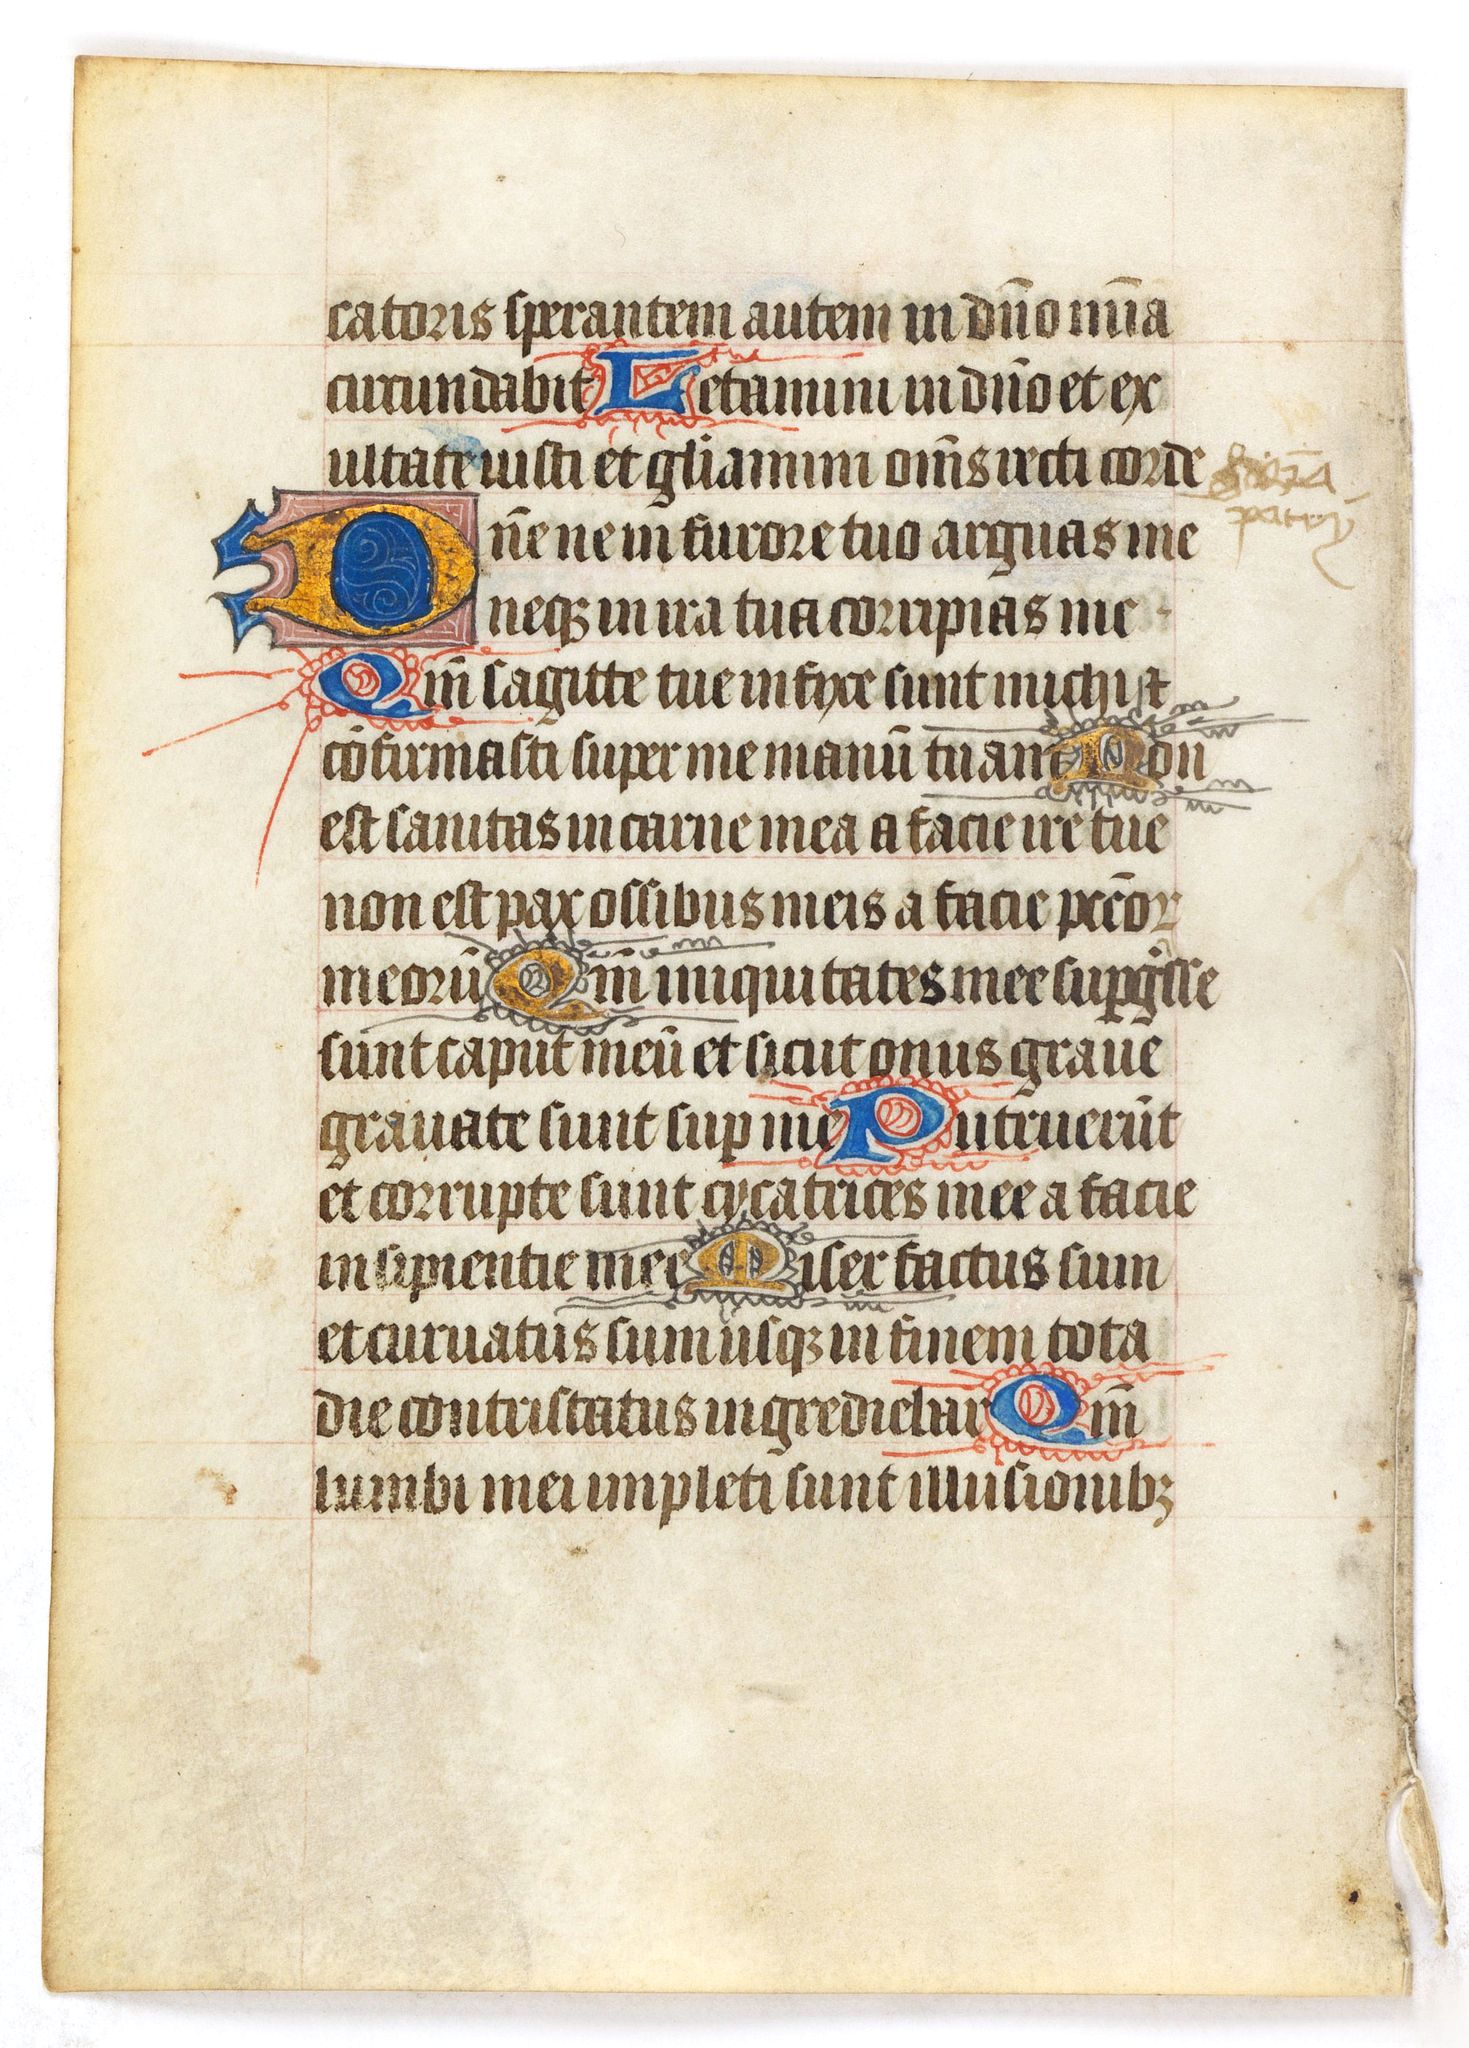 catoris sperantem autem in dn̄o mīa
circundabit Letamini in dn̄o et ex
ultate iusti et gl̄iamini om̄s recti corde
gloria
patri
Dn̄e ne in furore tuo arguas me
neqꝫ in ira tua corripias me
Qm̄ sagitte tue infixe sunt michi et
cōfirmasti super me manū tuam Non
est sanitas in carne mea a facie ire tue
non est pax ossibus meis a facie pccōꝝ
meorū Qm̄ iniquitates mee supgͥsse
sunt caput meū et sicut onus graue
grauate sunt suꝑ me Putruerūt
et corrupte sunt cycatrices mee a facie
insipientie mee Miser factus sum
et curuatus sum usqꝫ in finem tota
die contristatus ingrediebar Qm̄
lumbi mei impleti sunt illusionibꝫ